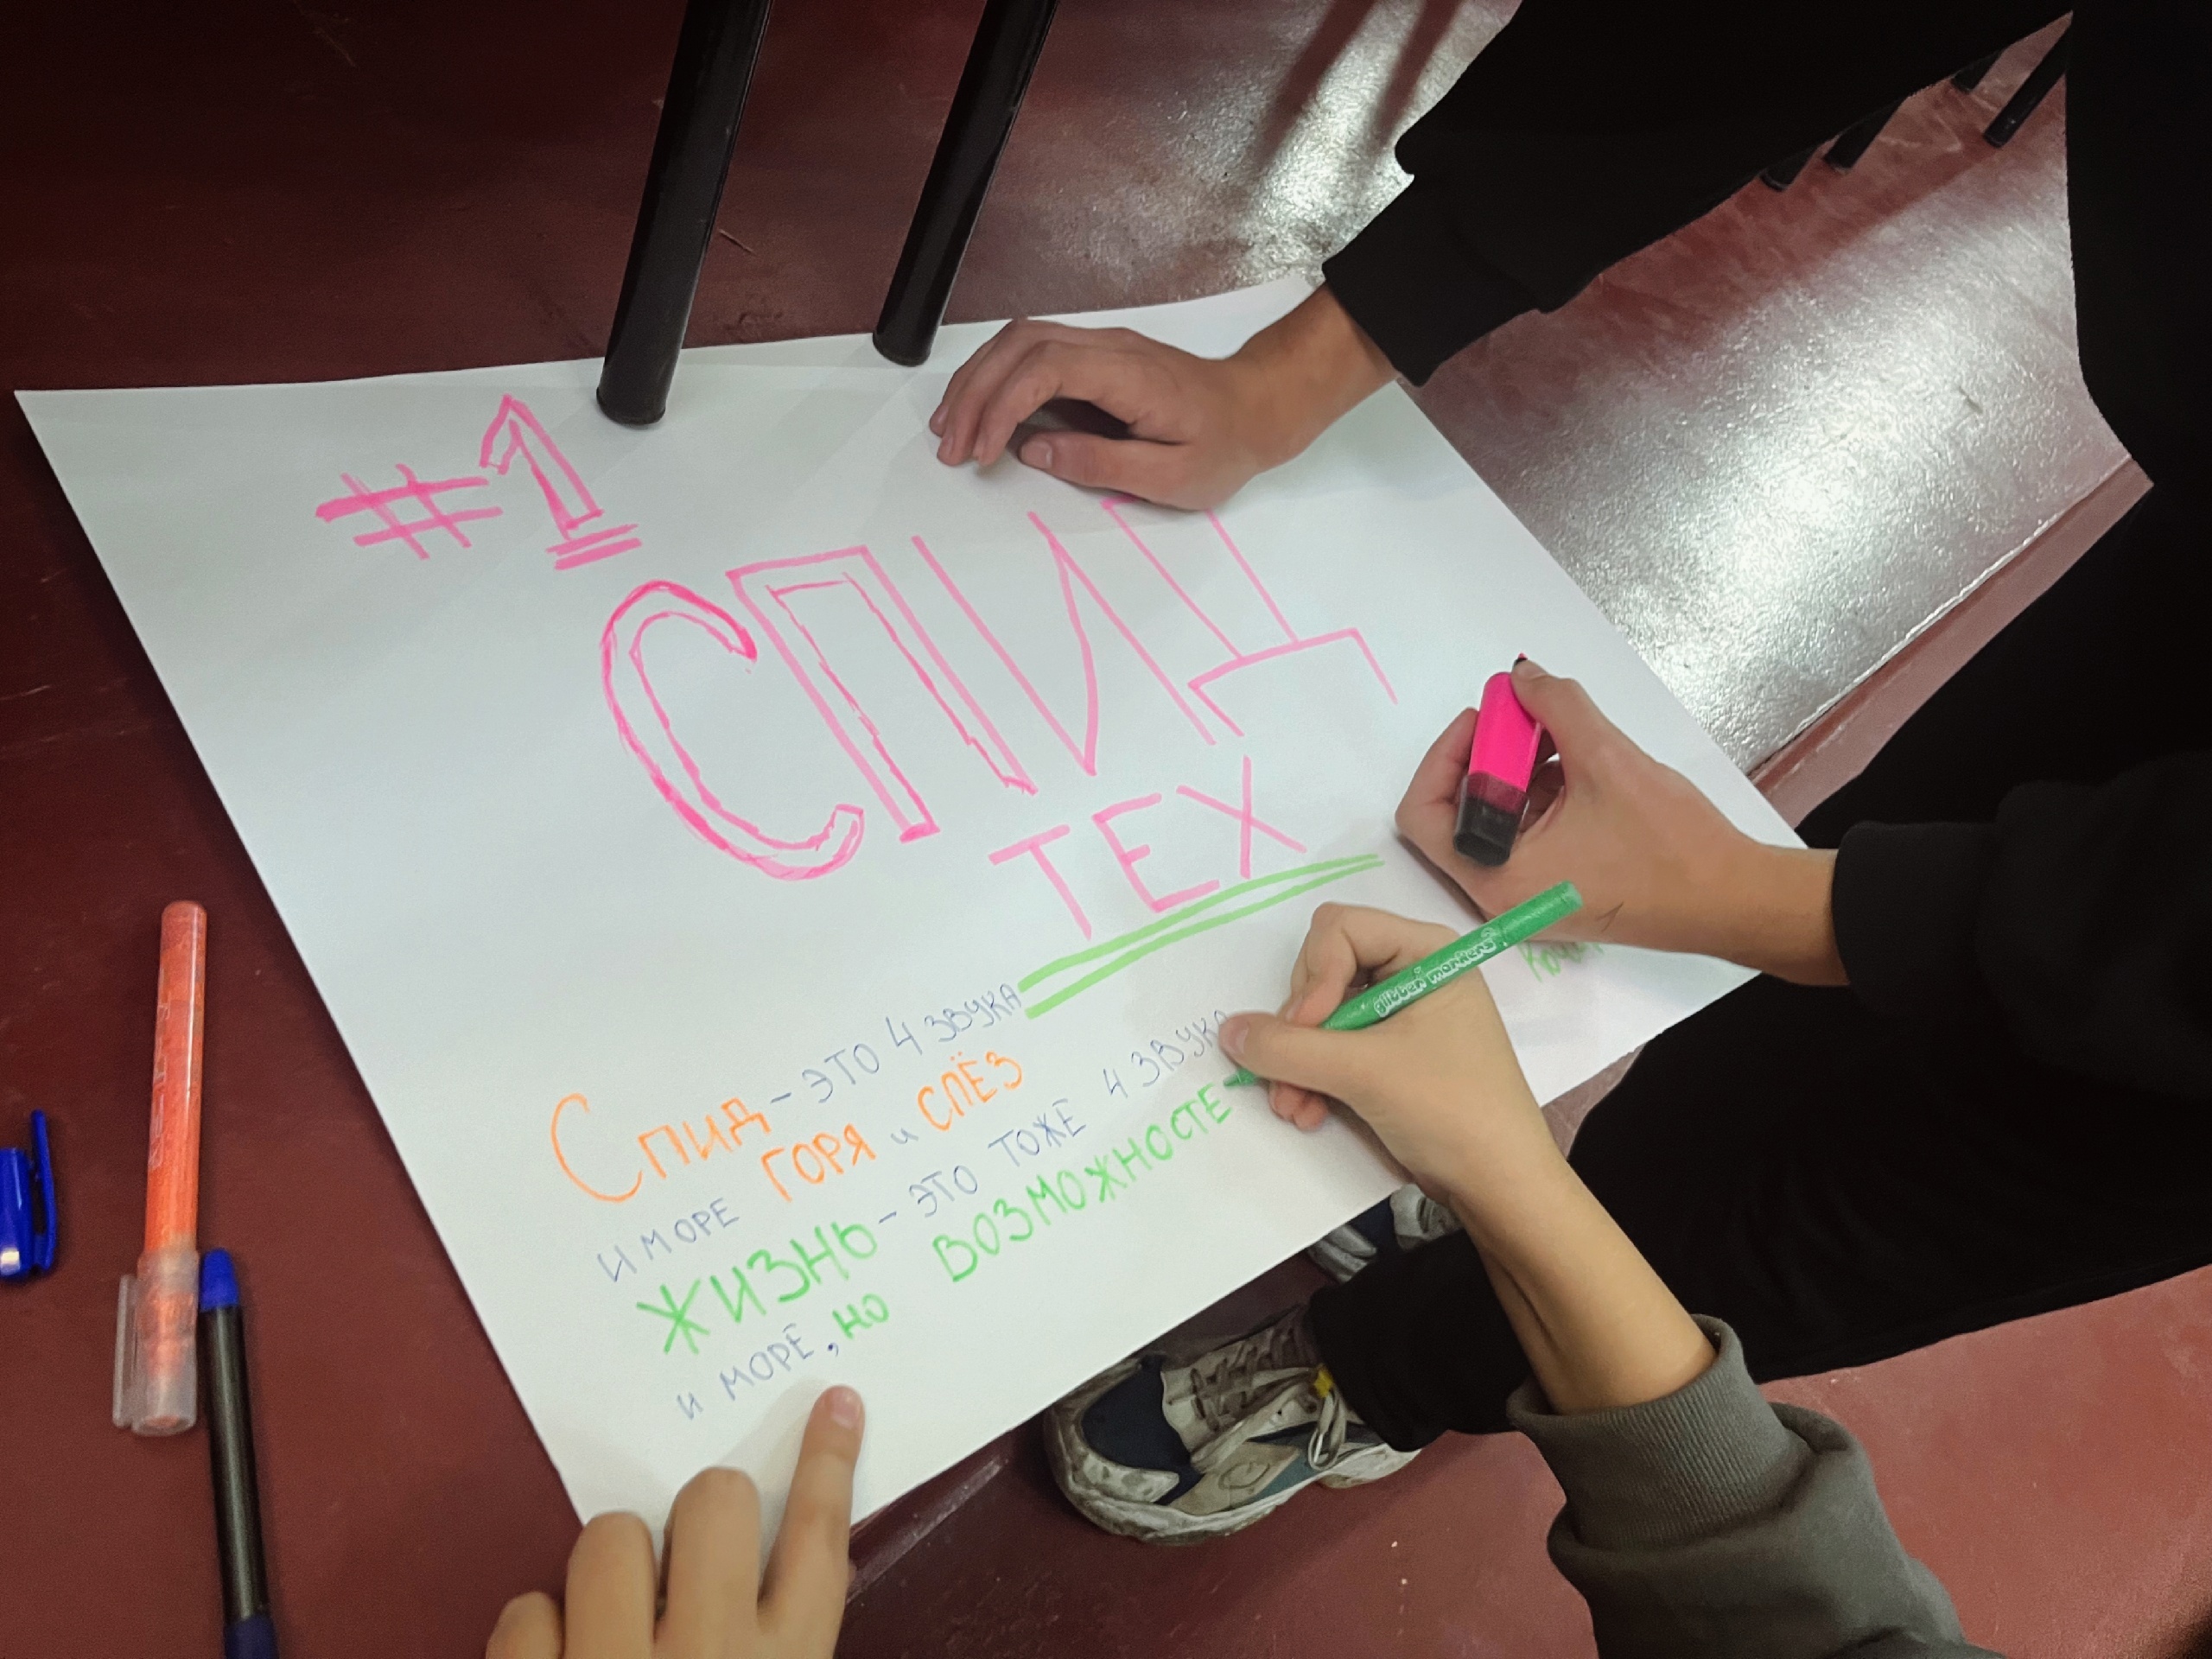 #1
СПИД
ТЕХ
СПИД - ЭТО 4 ЗВУКА
И МОРЕ ГОРЯ и СЛЁЗ
ЖИЗНЬ - ЭТО ТОЖЕ 4 ЗВУКА
И МОРЕ, НО ВОЗМОЖНОСТЕ
glitter markers